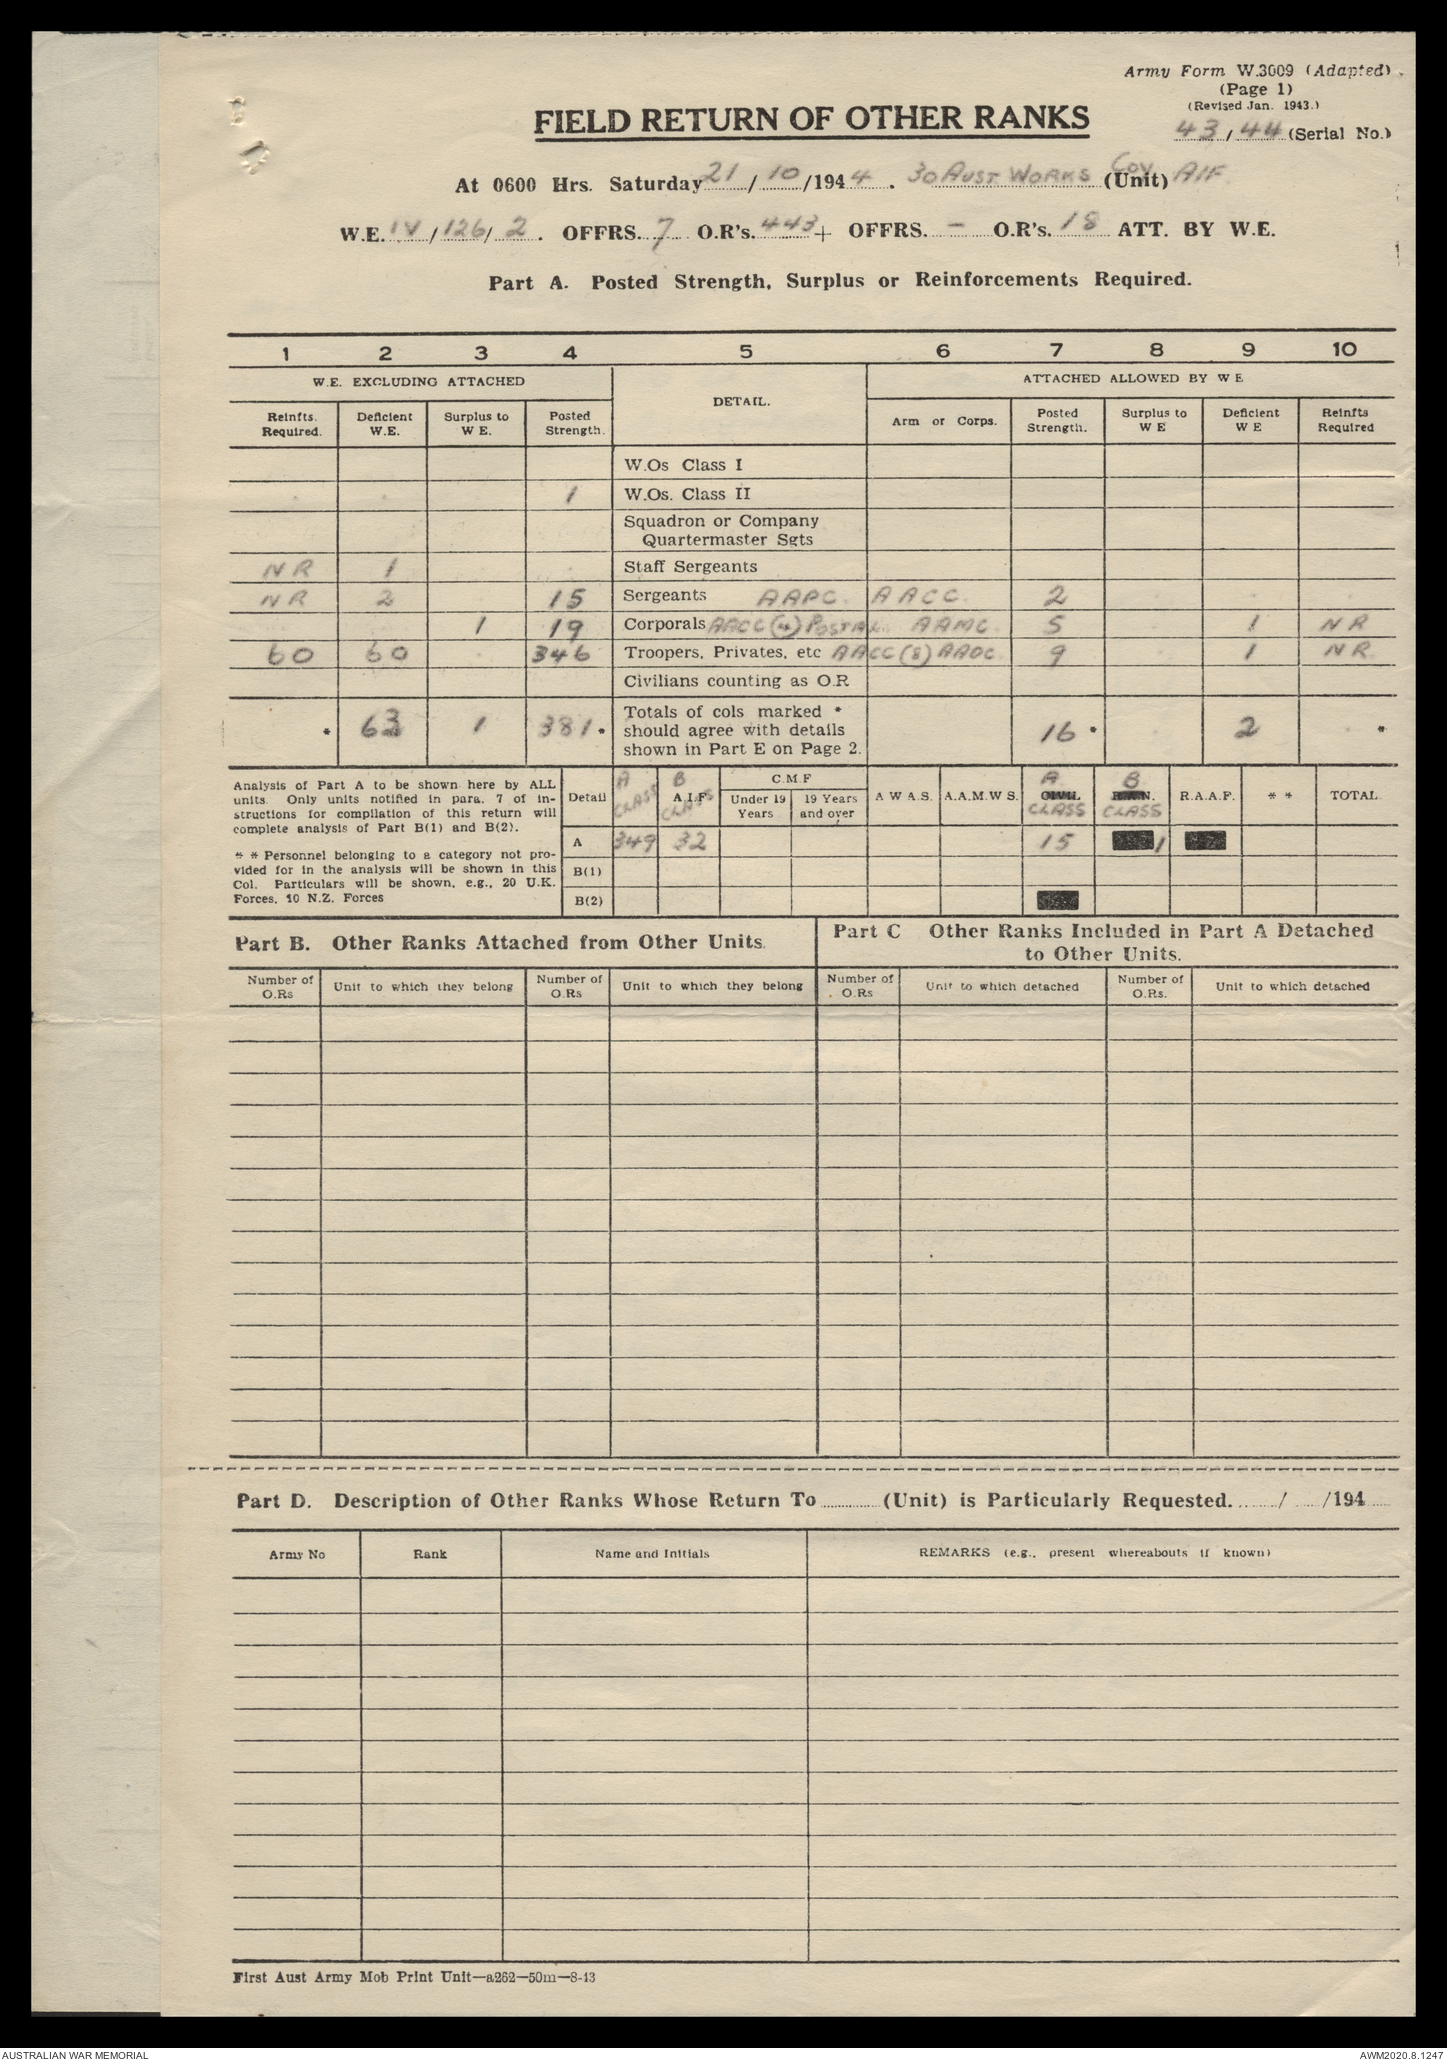 Army Form W.3009 (Adapted)
(Page 1)
(Revised Jan. 1943.)
43/44 (Serial No.)
FIELD RETURN OF OTHER RANKS
At 0600 Hrs. Saturday 21/10/1944. 30 AUST WORKS COY (Unit) AIF
W.E. IV/126/2. OFFRS. 7 O.R's. 443 + OFFRS. - O.R's. 18 ATT. BY W.E.
Part A. Posted Strength, Surplus or Reinforcements Required.
1 2 3 4 5 6 7 8 9 10
W.E. EXCLUDING ATTACHED DETAIL. ATTACHED ALLOWED BY W E
Reinfts. Required. Deficient W.E. Surplus to W E. Posted Strength. Arm or Corps. Posted Strength. Surplus to W E Deficient W E Reinfts Required
W.Os Class I
1 W.Os. Class II
Squadron or Company
Quartermaster Sgts
NR 1 Staff Sergeants
NR 2 15 Sergeants AAPC. AACC. 2
1 19 Corporals AACC (4) POSTAL AAMC. 5 1 NR
60 60 346 Troopers, Privates, etc AACC (8) AAOC 9 1 NR
Civilians counting as O.R
* 63 1 381 * Totals of cols marked * should agree with details shown in Part E on Page 2. 16 * 2 *
Analysis of Part A to be shown here by ALL
units. Only units notified in para. 7 of in-
structions for compilation of this return will
complete analysis of Part B(1) and B(2).
* * Personnel belonging to a category not pro-
vided for in the analysis will be shown in this
Col. Particulars will be shown, e.g., 20 U.K.
Forces, 10 N.Z. Forces
Detail A CLASS B A.I.F. CLASS C.M.F Under 19 Years 19 Years and over A W A S. A.A.M.W S. A CIVIL CLASS B R.A.N. CLASS R.A.A.F. * * TOTAL
A 349 32 15 1
B(1)
B(2)
Part B. Other Ranks Attached from Other Units.
Part C Other Ranks Included in Part A Detached
to Other Units.
Number of O.Rs Unit to which they belong Number of O.Rs Unit to which they belong Number of O.Rs Unit to which detached Number of O.Rs. Unit to which detached
Part D. Description of Other Ranks Whose Return To ............ (Unit) is Particularly Requested. ...... / .... /194 .....
Army No Rank Name and Initials REMARKS (e.g., present whereabouts if known)
First Aust Army Mob Print Unit—a262—50m—8-43
AUSTRALIAN WAR MEMORIAL AWM2020.8.1247